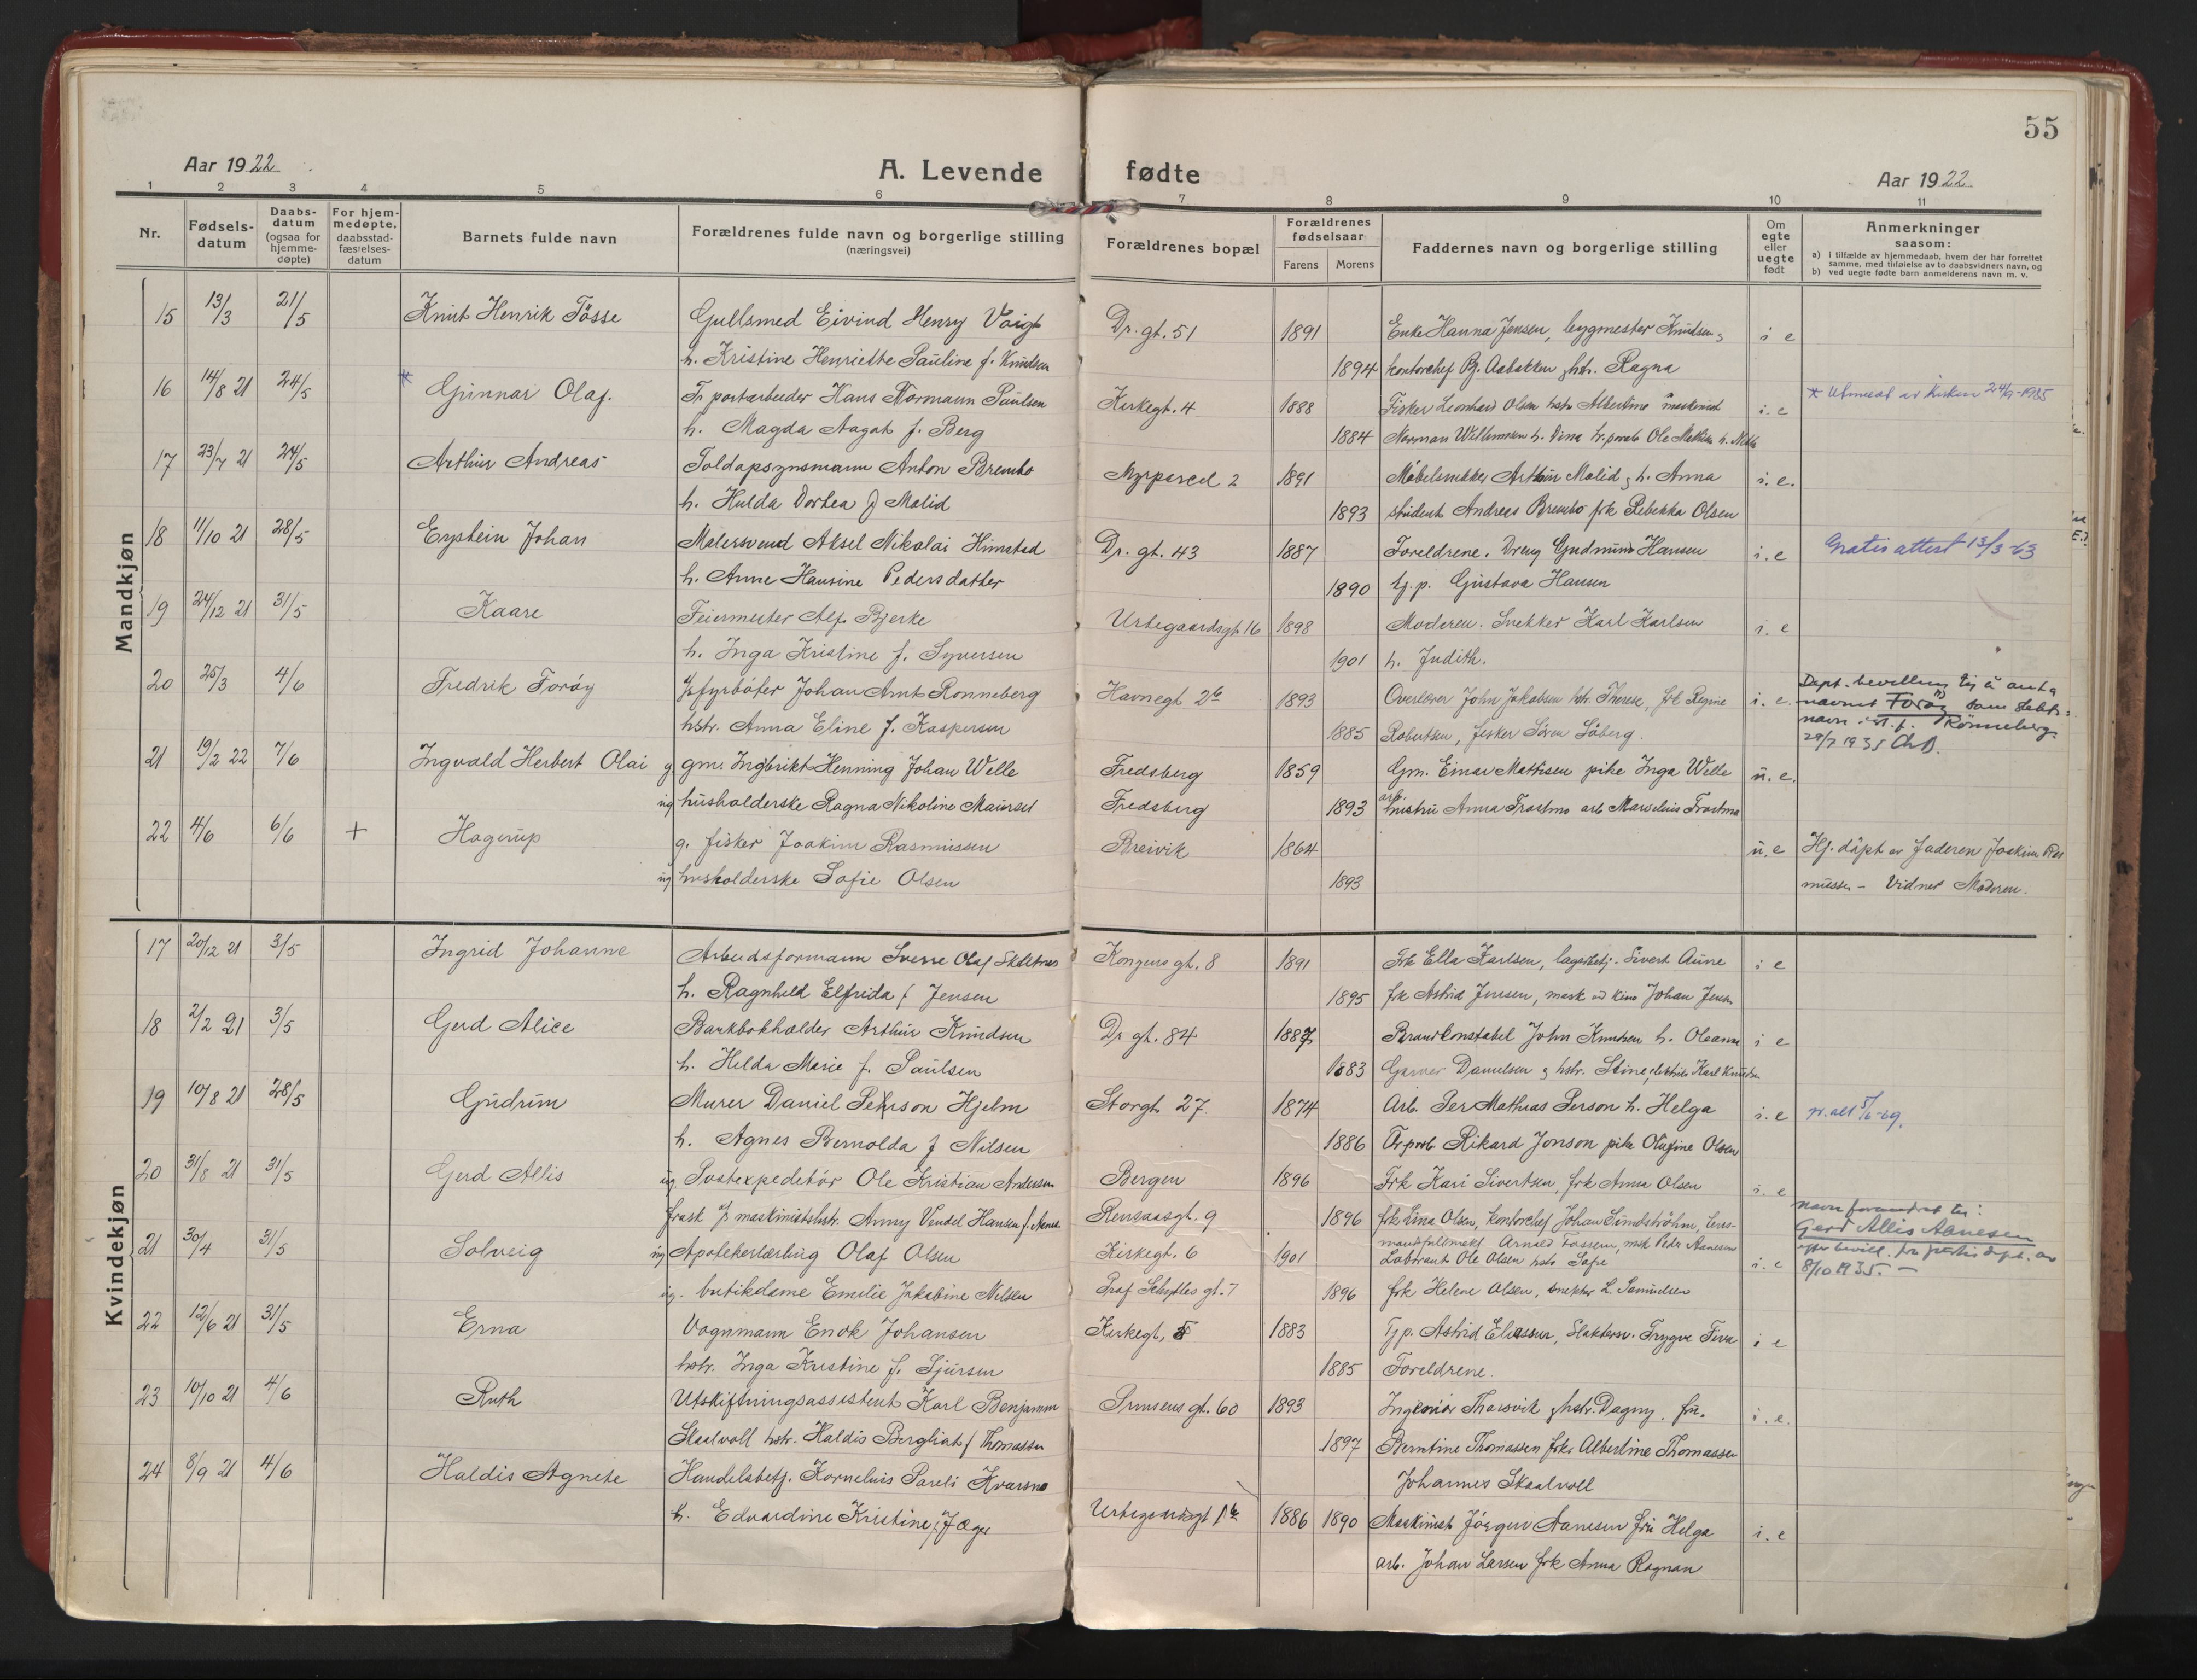 55
Aar 1922
A. Levende fødte
Aar 1922
1 2 3 4 5 6 7 8 9 10 11
Nr.
Fødselsdatum
Daabsdatum (ogsaa for hjemmedøpte)
For hjemmedøpte, daabsstadfæstelsesdatum
Barnets fulde navn
Forældrenes fulde navn og borgerlige stilling (næringsvei)
Forældrenes bopæl
Forældrenes fødselsaar
Farens Morens
Faddernes navn og borgerlige stilling
Om egte eller uegte født
Anmerkninger saasom:
a) i tilfælde av hjemmedaab, hvem der har forrettet samme, med tilføielse av to daabsvidners navn, og
b) ved uegte fødte barn anmelderens navn m. v.
Mandkjøn
15 13/3 21/5 Knut Henrik Tösse Gullsmed Eivind Henry Voigt Dr. gt. 51 1891 Enke Hanna Jensen, bygmester Knudsen, i e
h. Kristine Henriette Pauline f. Knudsen 1894 kontorchef Bj. Aabakken, hstr. Ragna
16 14/8 21 24/5 * Gunnar Olaf. Tr portarbeider Hans Normann Paulsen Kirkegt. 4 1888 Fisker Leonhard Olsen hstr Albertine maskinist i. e * Utmeldt av kirken 24/9-1935
h. Magda Aagot f. Berg 1884 Norman Willumsen h. Dina tr. portarb Ole Mathisen h.
17 23/7 21 24/5 Arthur Andreas Toldopsynsmann Anton Brembo Myrparcel 2 1891 Möbelsnekker Arthur Molid, h. Anna i. e.
h. Hulda Dortea f Molid 1893 student Andreas Brembo frk Rebekka Olsen
18 11/10 21 28/5 Eystein Johan Malersvend Aksel Nikolai Himstad Dr. gt. 43 1887 Foreldrene. Dreng Gudmund Hansen i. e Gratis attest 13/3-63
h. Anne Hansine Pedersdatter 1890 tj. p. Gustava Hansen
19 24/12 21 31/5 Kaare Feiermester Alf Bjerke Urtegaardsgt. 16 1898 Moderen. Snekker Karl Karlsen i. e
h. Inga Kristine f. Syversen 1901 h. Judith.
20 25/3 4/6 Fredrik Foröy fyrböter Johan Arnt Rønneberg Havnegt 2b 1893 Overlærer John Jakobsen hstr. Therese, frk Regine i. e. Dept. bevilling til å anta
hstr. Anna Eline f. Kaspersen 1885 Robertsen, fisker Sören Söberg.
navnet Forøy som slektsnavn ist. f. Rønneberg.
29/7 1935
21 19/2 22 7/6 Ingvald Herbert Olai g gm. Ingbrikt Henning Johan Welle Fredsberg 1859 Gm. Einar Mathisen pike Inga Welle u. e.
ug husholderske Ragna Nikoline Maurset Fredsberg 1893 arb. hustru Anna Trostmo arb Marselius Trostmo
22 4/6 6/6 + Hagerup g. fisker Joakim Rasmussen Breivik 1864 u. e Hj. döpt av faderen Joakim Ras
ug husholderske Sofie Olsen 1893 mussen - Vidner Moderen.
Kvindekjøn
17 20/12 21 3/5 Ingrid Johanne Arbeidsformann Sverre Olaf Skeltnes Kongens gt. 8 1891 Frk Ella Karlsen, lagerbetj. Sivert Aune i e
h. Ragnhild Elfrida f Jensen 1895 frk Astrid Jensen, mask ved kino Johan Jensen
18 2/2 21 3/5 Gerd Alice Bankbokholder Arthur Knudsen Dr gt. 84 1887 Brandkonstabel John Knudsen h. Oleanna i e
h. Hilda Marie f. Paulsen 1883 Garver Danielsen, hstr. Stine, elektriker Karl Knudsen
19 10/8 21 28/5 Gudrun Murer Daniel Pehrson Hjelm Storgt. 27. 1874 Arb. Per Mathias Person h. Helga i. e gr. att 5/6-69.
h. Agnes Bernolda f Nilsen 1886 Tr. portarb Rikard Jonson pike Olufine Olsen
20 31/8 21 31/5 Gerd Allis ug. Postexpeditör Ole Kristian Andersen Bergen 1896 Frk Kari Sivertsen, frk Anna Olsen i. e
frask maskinistshstr. Anny Vendel Hansen f. Aanes Rensaasgt. 9 1896 frk Lina Olsen, kontorchef Johan Sundström, lensmandsfullmekt. Arnold Fossem, msk Peder Aanesen
navn forandret til:
Gerd Allis Aanesen
efter bevill. fra justis dept. av
8/10 1935. -
21 30/4 31/5 Solveig ug Apotekerlærling Olaf Olsen Kirkegt. 6 1901 Laborant Ole Olsen hstr Sofie i. e
ug. butikdame Emilie Jakobine Nilsen Prof Schyttes gt. 7 1896 frk Helene Olsen, snekker L. Samuelsen
22 12/6 21 31/5 Erna Vognmann Enok Johansen Kirkegt, 5 1883 Tjp. Astrid Eliassen, Slaktersv. Trygve i e
hstr. Inga Kristine f. Sjursen 1885 Foreldrene.
23 10/10 21 4/6 Ruth Utskiftningsassistent Karl Benjamin Prinsens gt. 60 1893 Ingeniör Thorsvik, hstr. Dagny. fru. i. e.
Skaalvoll hstr. Haldis Bergliot f Thomassen 1897 Berntine Thomassen frk. Albertine Thomassen
Johannes Skaalvoll
24 8/9 21 4/6 Haldis Agnete Handelsbetj. Kornelius Pareli Kvarsnes
h. Edvardine Kristine f. Jæger Urtegaardsgt 1b 1886 1890 Maskinist Jörgen Aanesen fru Helga i. e
arb. Johan Larsen frk Anna Rognan